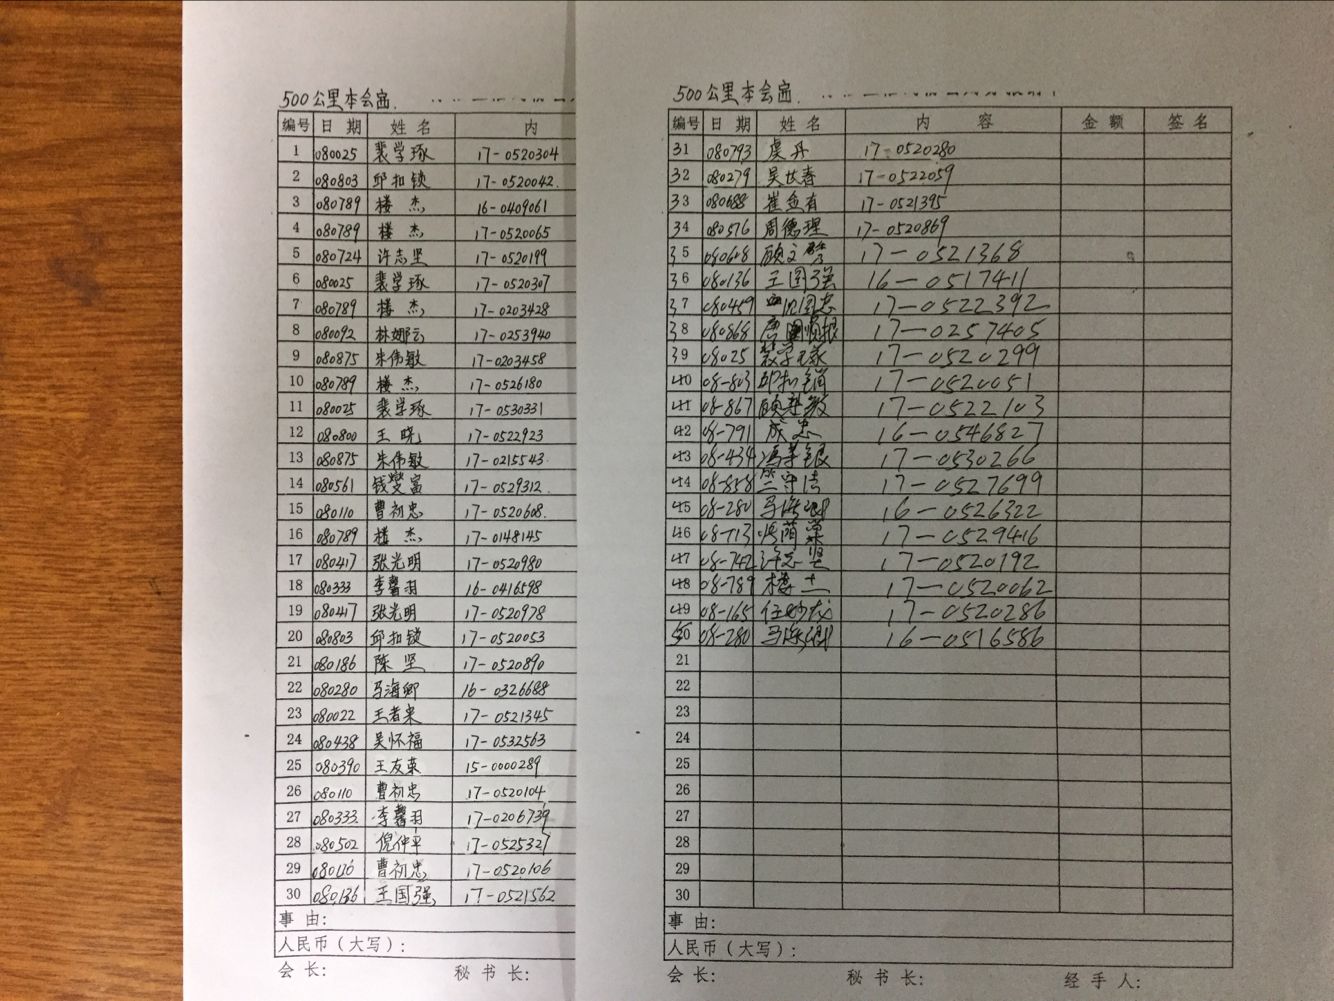 500公里本会窗.
编号 日 期 姓 名 内
1 080025 裴学琢 17-0520304
2 080803 邱扣锁 17-0520042.
3 080789 楼 杰 16-0409061
4 080789 楼 杰 17-0520065
5 080724 许志坚 17-0520199
6 080025 裴学琢 17-0520307
7 080789 楼 杰 17-0203428
8 080092 林娜云 17-0253940
9 080875 朱伟敏 17-0203458
10 080789 楼 杰 17-0526180
11 080025 裴学琢 17-0530331
12 080800 王 晓 17-0522923
13 080875 朱伟敏 17-0215543.
14 080561 钱燮富 17-0529312.
15 080110 曹初忠 17-0520608.
16 080789 楼 杰 17-0148145
17 080417 张光明 17-0520980
18 080333 李馨羽 16-0416598
19 080417 张光明 17-0520978
20 080803 邱扣锁 17-0520053
21 080186 陈 坚 17-0520890
22 080280 马海卿 16-0326688
23 080022 王者来 17-0521345
24 080438 吴怀福 17-0532563
25 080390 王友荣 15-0000289
26 080110 曹初忠 17-0520104
27 080333 李馨羽 17-0206739
28 080502 倪仲平 17-0525327
29 080110 曹初忠 17-0520106
30 080136 王国强 17-0521562
事 由:
人民币（大写）:
会 长: 秘 书 长:
500公里本会窗.
编号 日 期 姓 名 内 容 金 额 签 名
31 080793 虞丹 17-0520280
32 080279 吴世春 17-0522059
33 080688 崔金有 17-0521395
34 080576 周德理 17-0520869
35 080608 顾文 17-0521368
36 080136 王国强 16-0517411
37 080459 国忠 17-0522392
38 080868 唐 17-0257405
39 08025 裴学琢 17-0520299
40 08-803 邱扣锁 17-0520051
41 08-867 顾 敏 17-0522103
42 08-791 成忠 16-0546827
43 08-434 冯 银 17-0530266
44 08-858 竺守法 17-0527699
45 08-280 马海卿 16-0526322
46 08-713 荫 17-0529416
47 08-742 许志坚 17-0520192
48 08-789 楼杰 17-0520062
49 08-165 任妙龙 17-0520286
50 08-280 马海卿 16-0516586
21
22
23
24
25
26
27
28
29
30
事 由:
人民币（大写）:
会 长: 秘 书 长: 经 手 人: